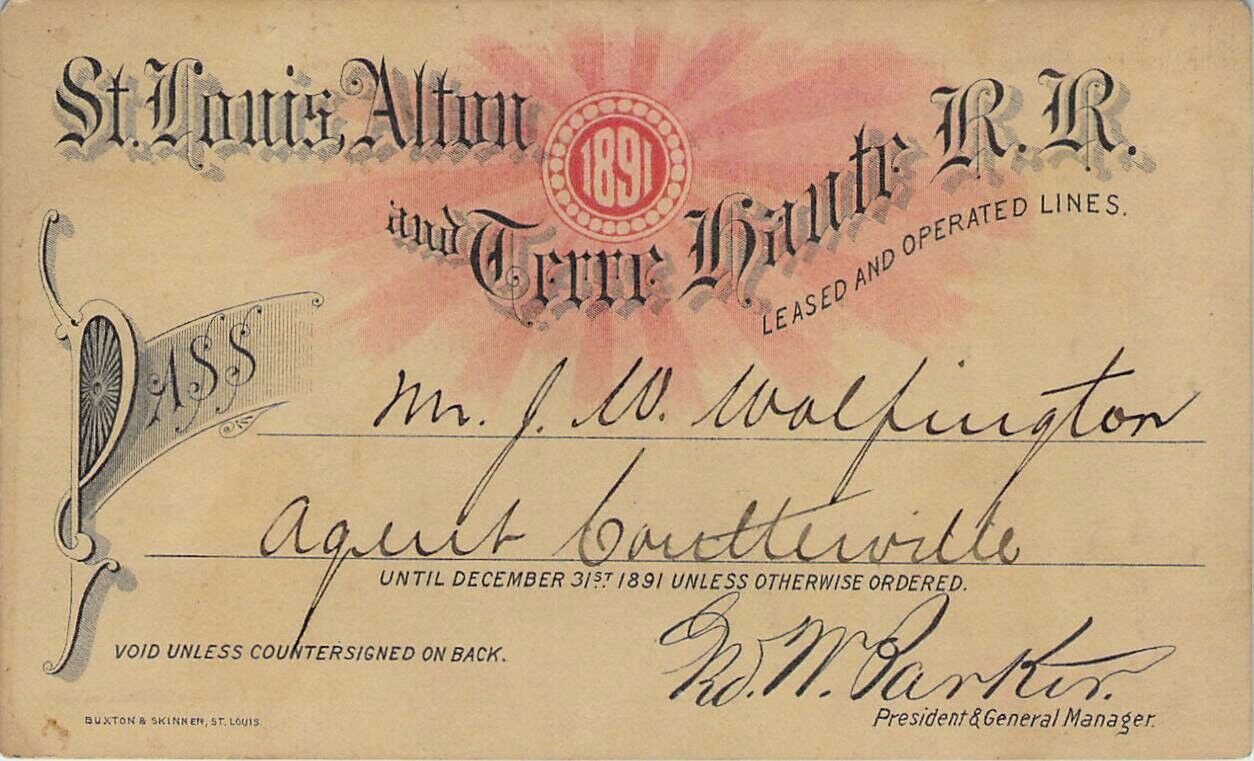 St. Louis, Alton
1891
and Terre Haute R. R.
LEASED AND OPERATED LINES.
PASS
Mr. J. W. Wolfington
Agent Coulterville
UNTIL DECEMBER 31ST 1891 UNLESS OTHERWISE ORDERED.
VOID UNLESS COUNTERSIGNED ON BACK.
Geo. W. Parker.
President & General Manager.
BUXTON & SKINNER, ST. LOUIS.